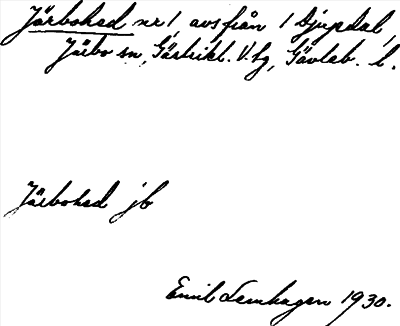 Järbohed nr 1, avs från 1 Djupdal,
Järbo sn, Gästrikl. V. tg, Gävleb. l.
Järbohed jb
Emil Lenhagen 1930.